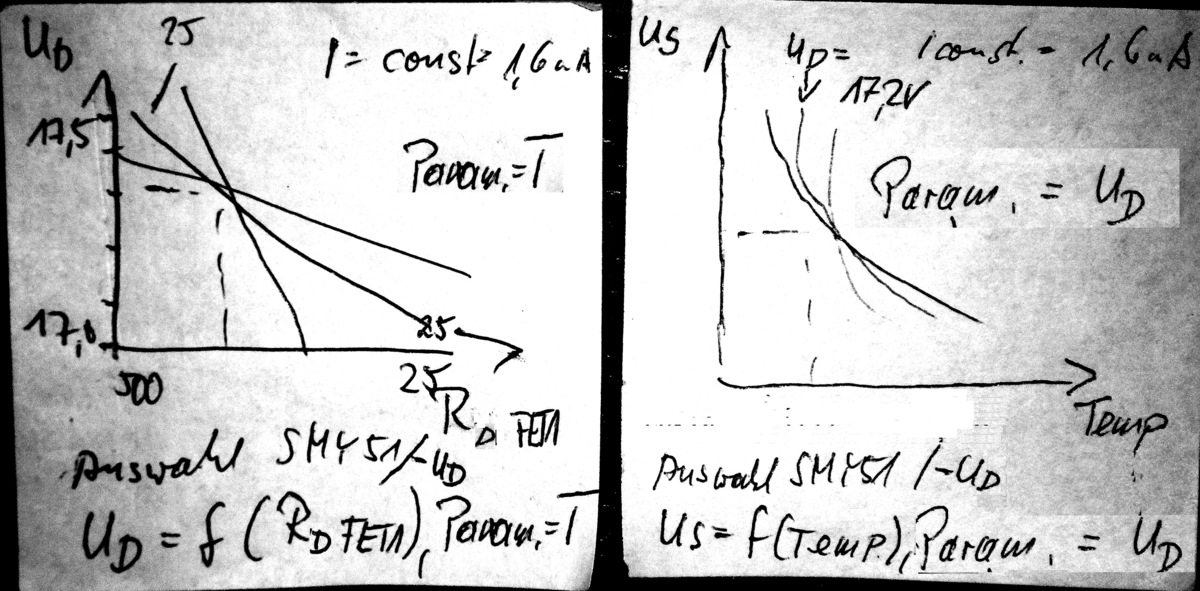 UD
25
I = const = 1,6 mA
17,5
Param. = T
17,0
500
25
25
RD FET1
Auswahl SMY51/-UD
UD = f (RD FET1), Param. = T
US
UD =
I const. = 1,6 mA
17,2V
Param. = UD
Temp
Auswahl SMY51 /-UD
US = f(Temp.), Param. = UD